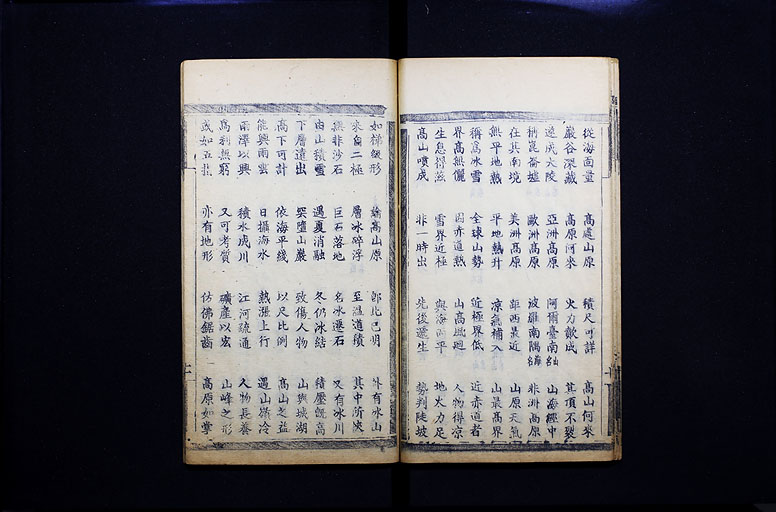 從海面量 高處山原 積尺可詳 高山何來
巖谷深藏 高原何來 火力歕成 其頂不裂
遂成大陵 亞洲高原 阿爾臺南 山海經中
柄崑崙墟 歐洲高原 波羅南隅 非洲高原
在其南境 美洲高原 部西最近 山原天氣
無平地熱 平地熱升 涼氣補入 山最高界
稱為冰雪 全球山勢 近極界低 近赤道者
界高無儷 因赤道熱 山高風迴 人物得涼
生息得滋 雪界近極 與海面平 地火力足
高山噴成 非一時出 先後遞生 勢判陡坡
如梯級形 論高山原 外有冰山
來自二極 層冰碎浮 至溫道積 其中所陝
無非沙石 巨石落地 名冰遷石 又有冰川
由山積雪 遇夏消融 冬仍冰結 積壓既高
下層遠出 突墮山巖 致傷人物 山與城湖
高下可計 依海平綫 以尺比例 高山之益
能興雨雲 日攝海水 熱漲上行 遇山嶺冷
雨澤以興 積水成川 江河疏通 人物長養
為利無窮 又可考質 礦產以宏 山峰之形
或如立 亦有地形 仿佛鋸齒 高原如掌